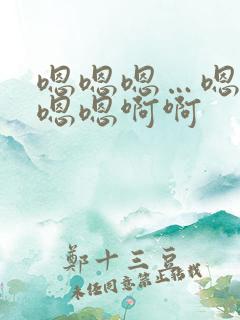 嗯嗯嗯…嗯
嗯嗯啊啊
鄭十三豆
未经同意禁止转载